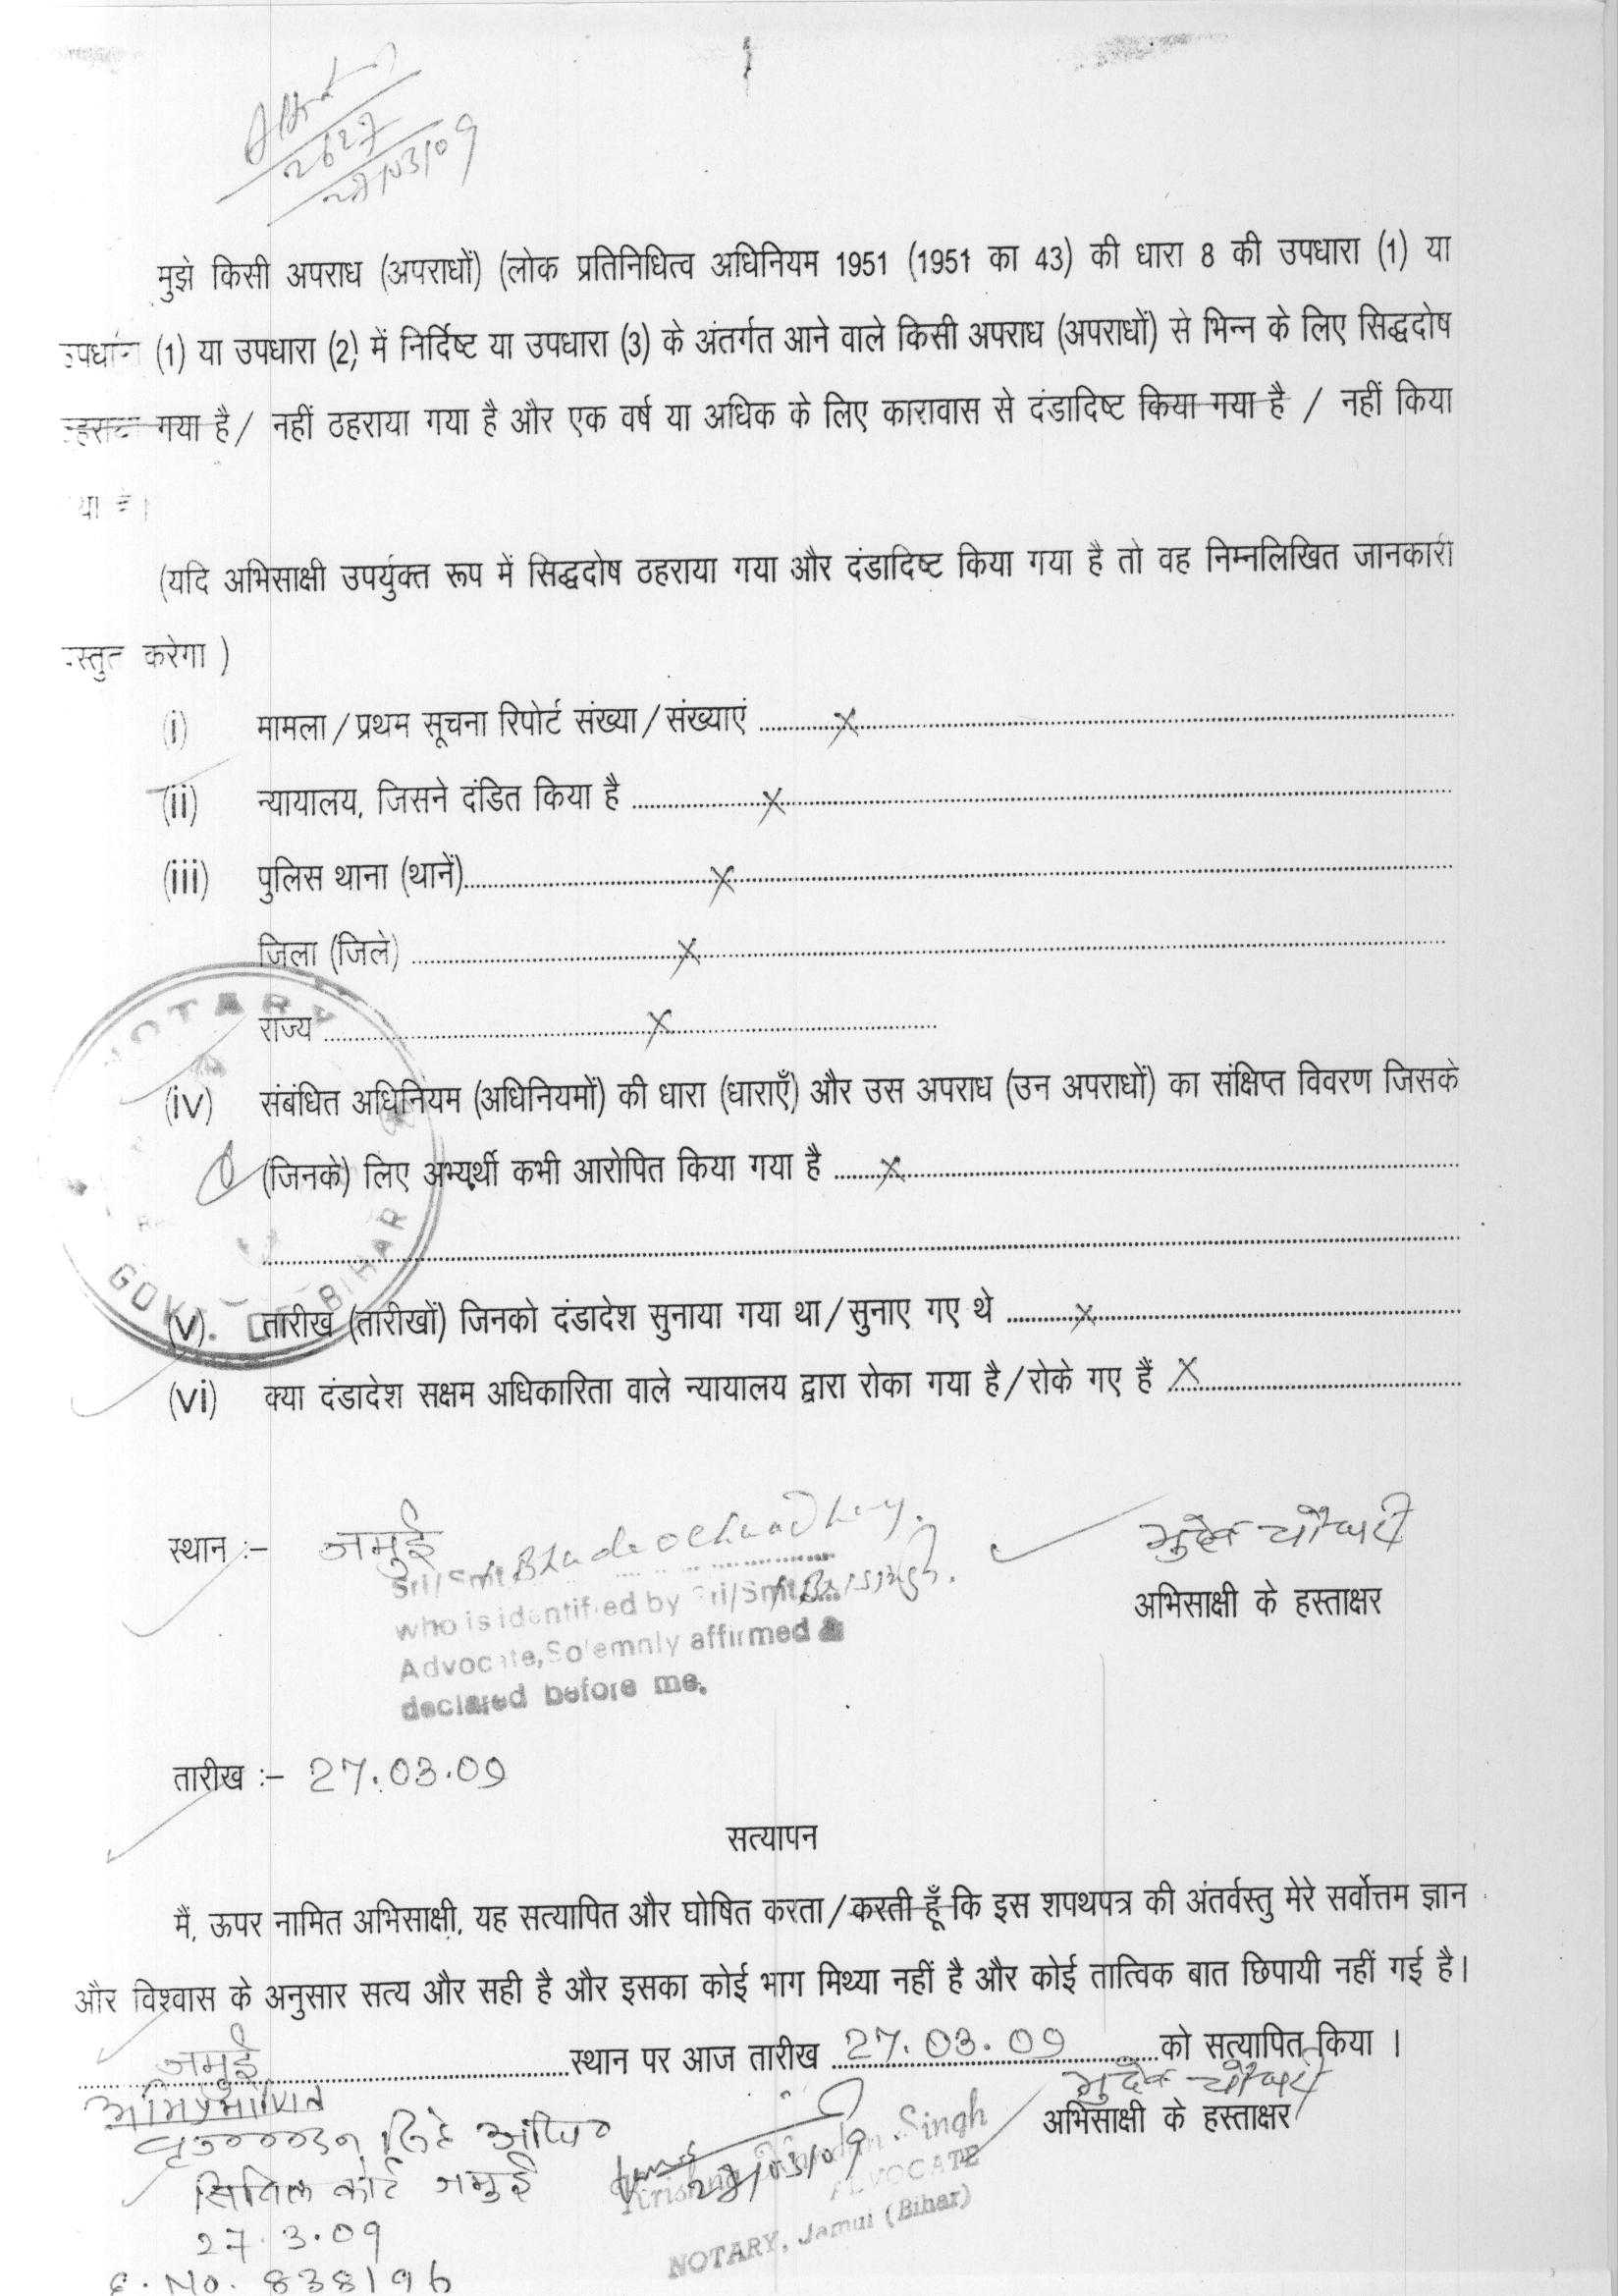 2627
27/03/09
मुझे किसी अपराध (अपराधों) (लोक प्रतिनिधित्व अधिनियम 1951 (1951 का 43) की धारा 8 की उपधारा (1) या
उपधारा (1) या उपधारा (2) में निर्दिष्ट या उपधारा (3) के अंतर्गत आने वाले किसी अपराध (अपराधों) से भिन्न के लिए सिद्धदोष
ठहराया गया है / नहीं ठहराया गया है और एक वर्ष या अधिक के लिए कारावास से दंडादिष्ट किया गया है / नहीं किया
या है।
(यदि अभिसाक्षी उपर्युक्त रूप में सिद्धदोष ठहराया गया और दंडादिष्ट किया गया है तो वह निम्नलिखित जानकारी
प्रस्तुत करेगा )
(i) मामला / प्रथम सूचना रिपोर्ट संख्या / संख्याएं ........X........
(ii) न्यायालय, जिसने दंडित किया है ........X........
(iii) पुलिस थाना (थानें)........X........
जिला (जिले) ........X........
राज्य ........X........
(iv) संबंधित अधिनियम (अधिनियमों) की धारा (धाराएँ) और उस अपराध (उन अपराधों) का संक्षिप्त विवरण जिसके
(जिनके) लिए अभ्यर्थी कभी आरोपित किया गया है ........X........
NOTARY
GOVT. OF BIHAR
(v). तारीख (तारीखों) जिनको दंडादेश सुनाया गया था / सुनाए गए थे ........X........
(vi) क्या दंडादेश सक्षम अधिकारिता वाले न्यायालय द्वारा रोका गया है / रोके गए हैं ..X........
स्थान :- जमुई
Sri/Smt. Bhudeo Chaudhary.
who is identified by Sri/Smt.
Advocate, Solemnly affirmed &
declared before me.
भुदेव चौधरी
अभिसाक्षी के हस्ताक्षर
तारीख :- 27.03.09
सत्यापन
मैं, ऊपर नामित अभिसाक्षी, यह सत्यापित और घोषित करता / करती हूँ कि इस शपथपत्र की अंतर्वस्तु मेरे सर्वोत्तम ज्ञान
और विश्वास के अनुसार सत्य और सही है और इसका कोई भाग मिथ्या नहीं है और कोई तात्विक बात छिपायी नहीं गई है।
जमुई ........स्थान पर आज तारीख 27.03.09 को सत्यापित किया ।
भुदेव चौधरी
अभिसाक्षी के हस्ताक्षर
अभिप्रमाणित
सिविल कोर्ट जमुई
27.3.09
E. No. 838196
27/03/09
Krishna Nandan Singh
ADVOCATE
NOTARY, Jamui (Bihar)